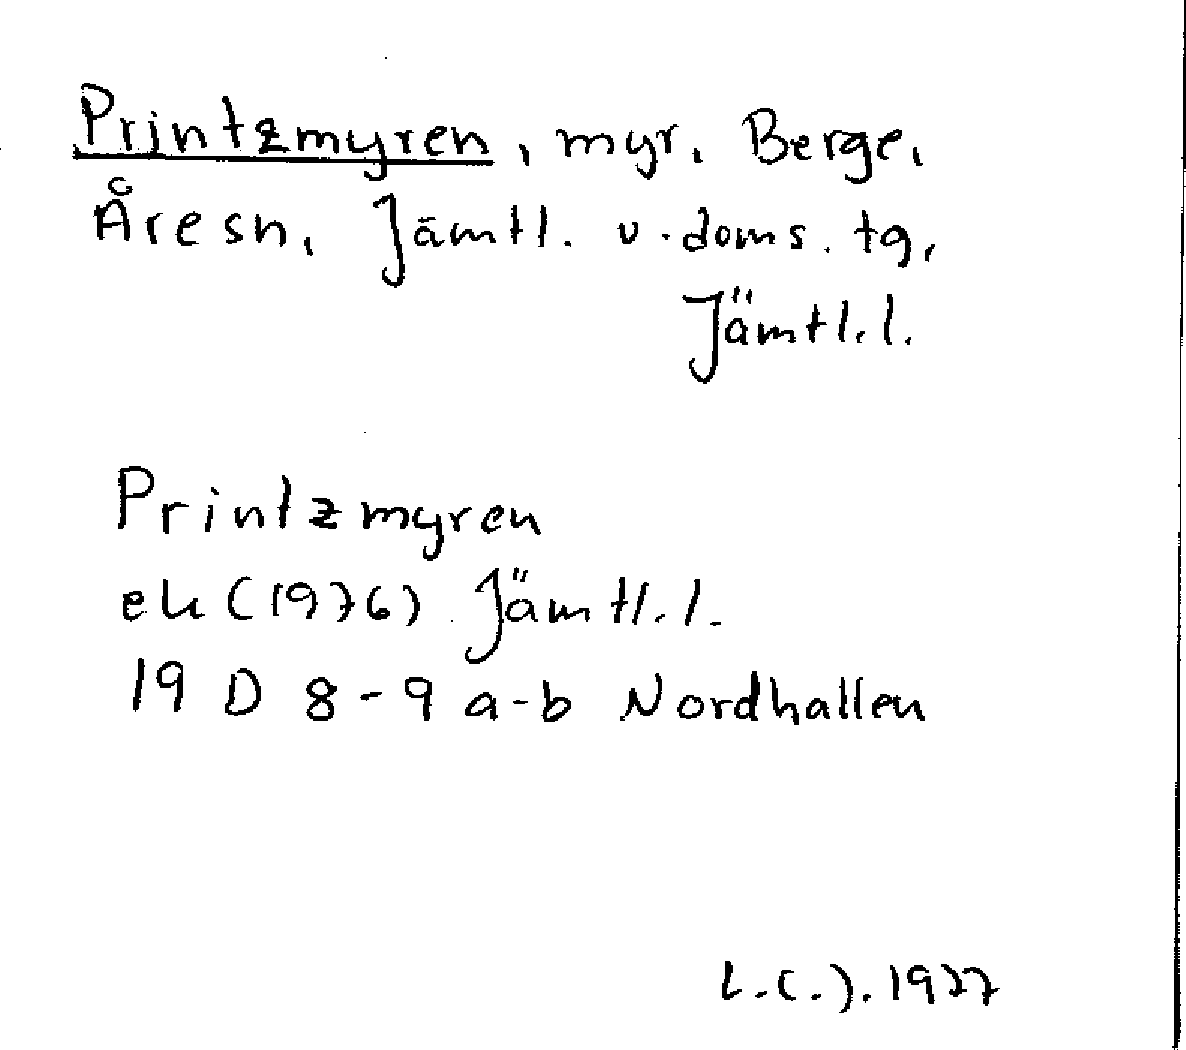 Printzmyren, myr. Berge,
Åre sn, Jämtl. v. doms. tg,
Jämtl. l.
Printzmyren
ek (1976) Jämtl. l.
19 D 8-9 a-b Nordhallen
1977